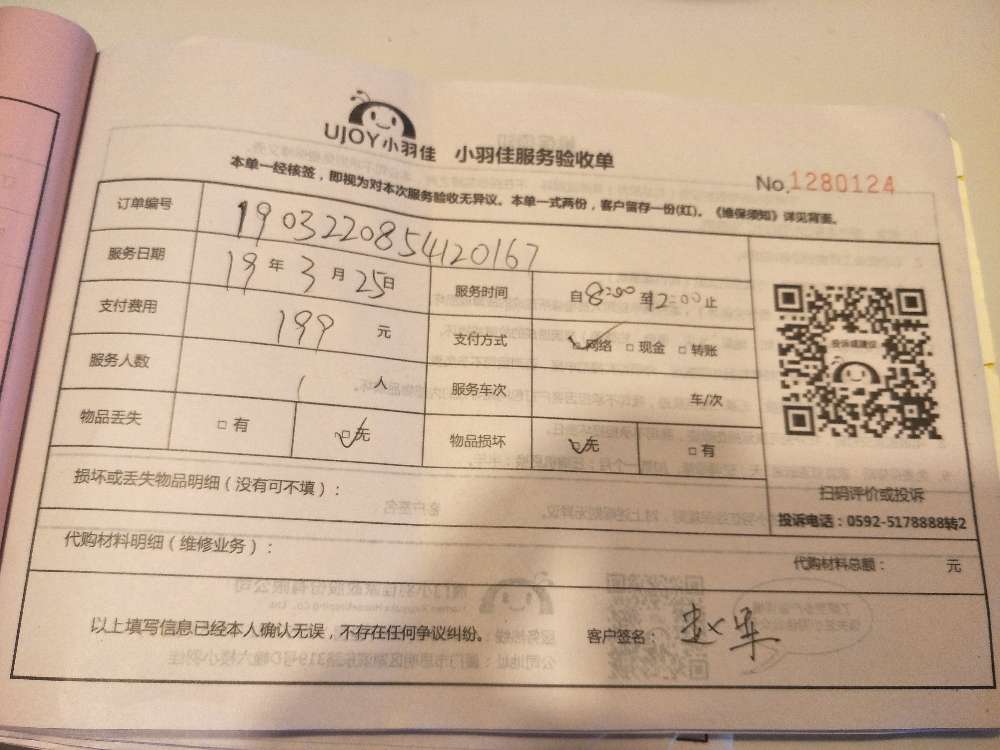 UJOY小羽佳 小羽佳服务验收单
No.1280124
本单一经核签，即视为对本次服务验收无异议。本单一式两份，客户留存一份(红)。《维保须知》详见背面。
订单编号 1903220854120167
服务日期 19年3月25日 服务时间 自8:00至12:00止
支付费用 199元 支付方式 ☑网络 □现金 □转账
服务人数 1人 服务车次 车/次
物品丢失 □有 ☑无 物品损坏 ☑无 □有
投诉或建议
扫码评价或投诉
投诉电话：0592-5178888转2
损坏或丢失物品明细（没有可不填）：
代购材料明细（维修业务）： 代购材料总额： 元
以上填写信息已经本人确认无误，不存在任何争议纠纷。 客户签名：赵军